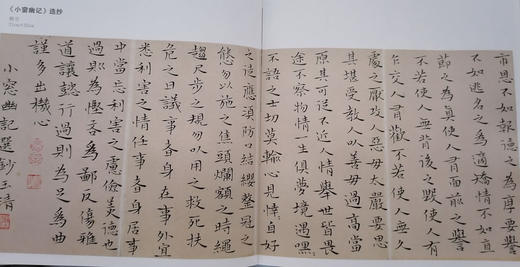 《小窗幽记》选抄
市恩不如報德之為厚要譽
不如逃名之為適矯情不如直
節之為真使人有面前之譽
不若使人無背後之毀使人有
乍交人有歡不若使人無久
處之厭攻人惡毋太嚴要思
其堪受教人以善毋過高當
原其可從不近人情舉世皆畏
途不察物情一生俱夢境遇嘿
不語之士切莫輸心見悻自好
之徒應須防口結纓整冠之
態勿以施之焦頭爛額之時繩
趨尺步之規勿以用之救死扶
危之日議事者身在事外宜
悉利害之情任事者身居事
中當忘利害之慮儉美德也
過則為慳吝為鄙反傷雅
道讓懿行過則為足為曲
謹多出機心
小窓幽記選鈔玉清